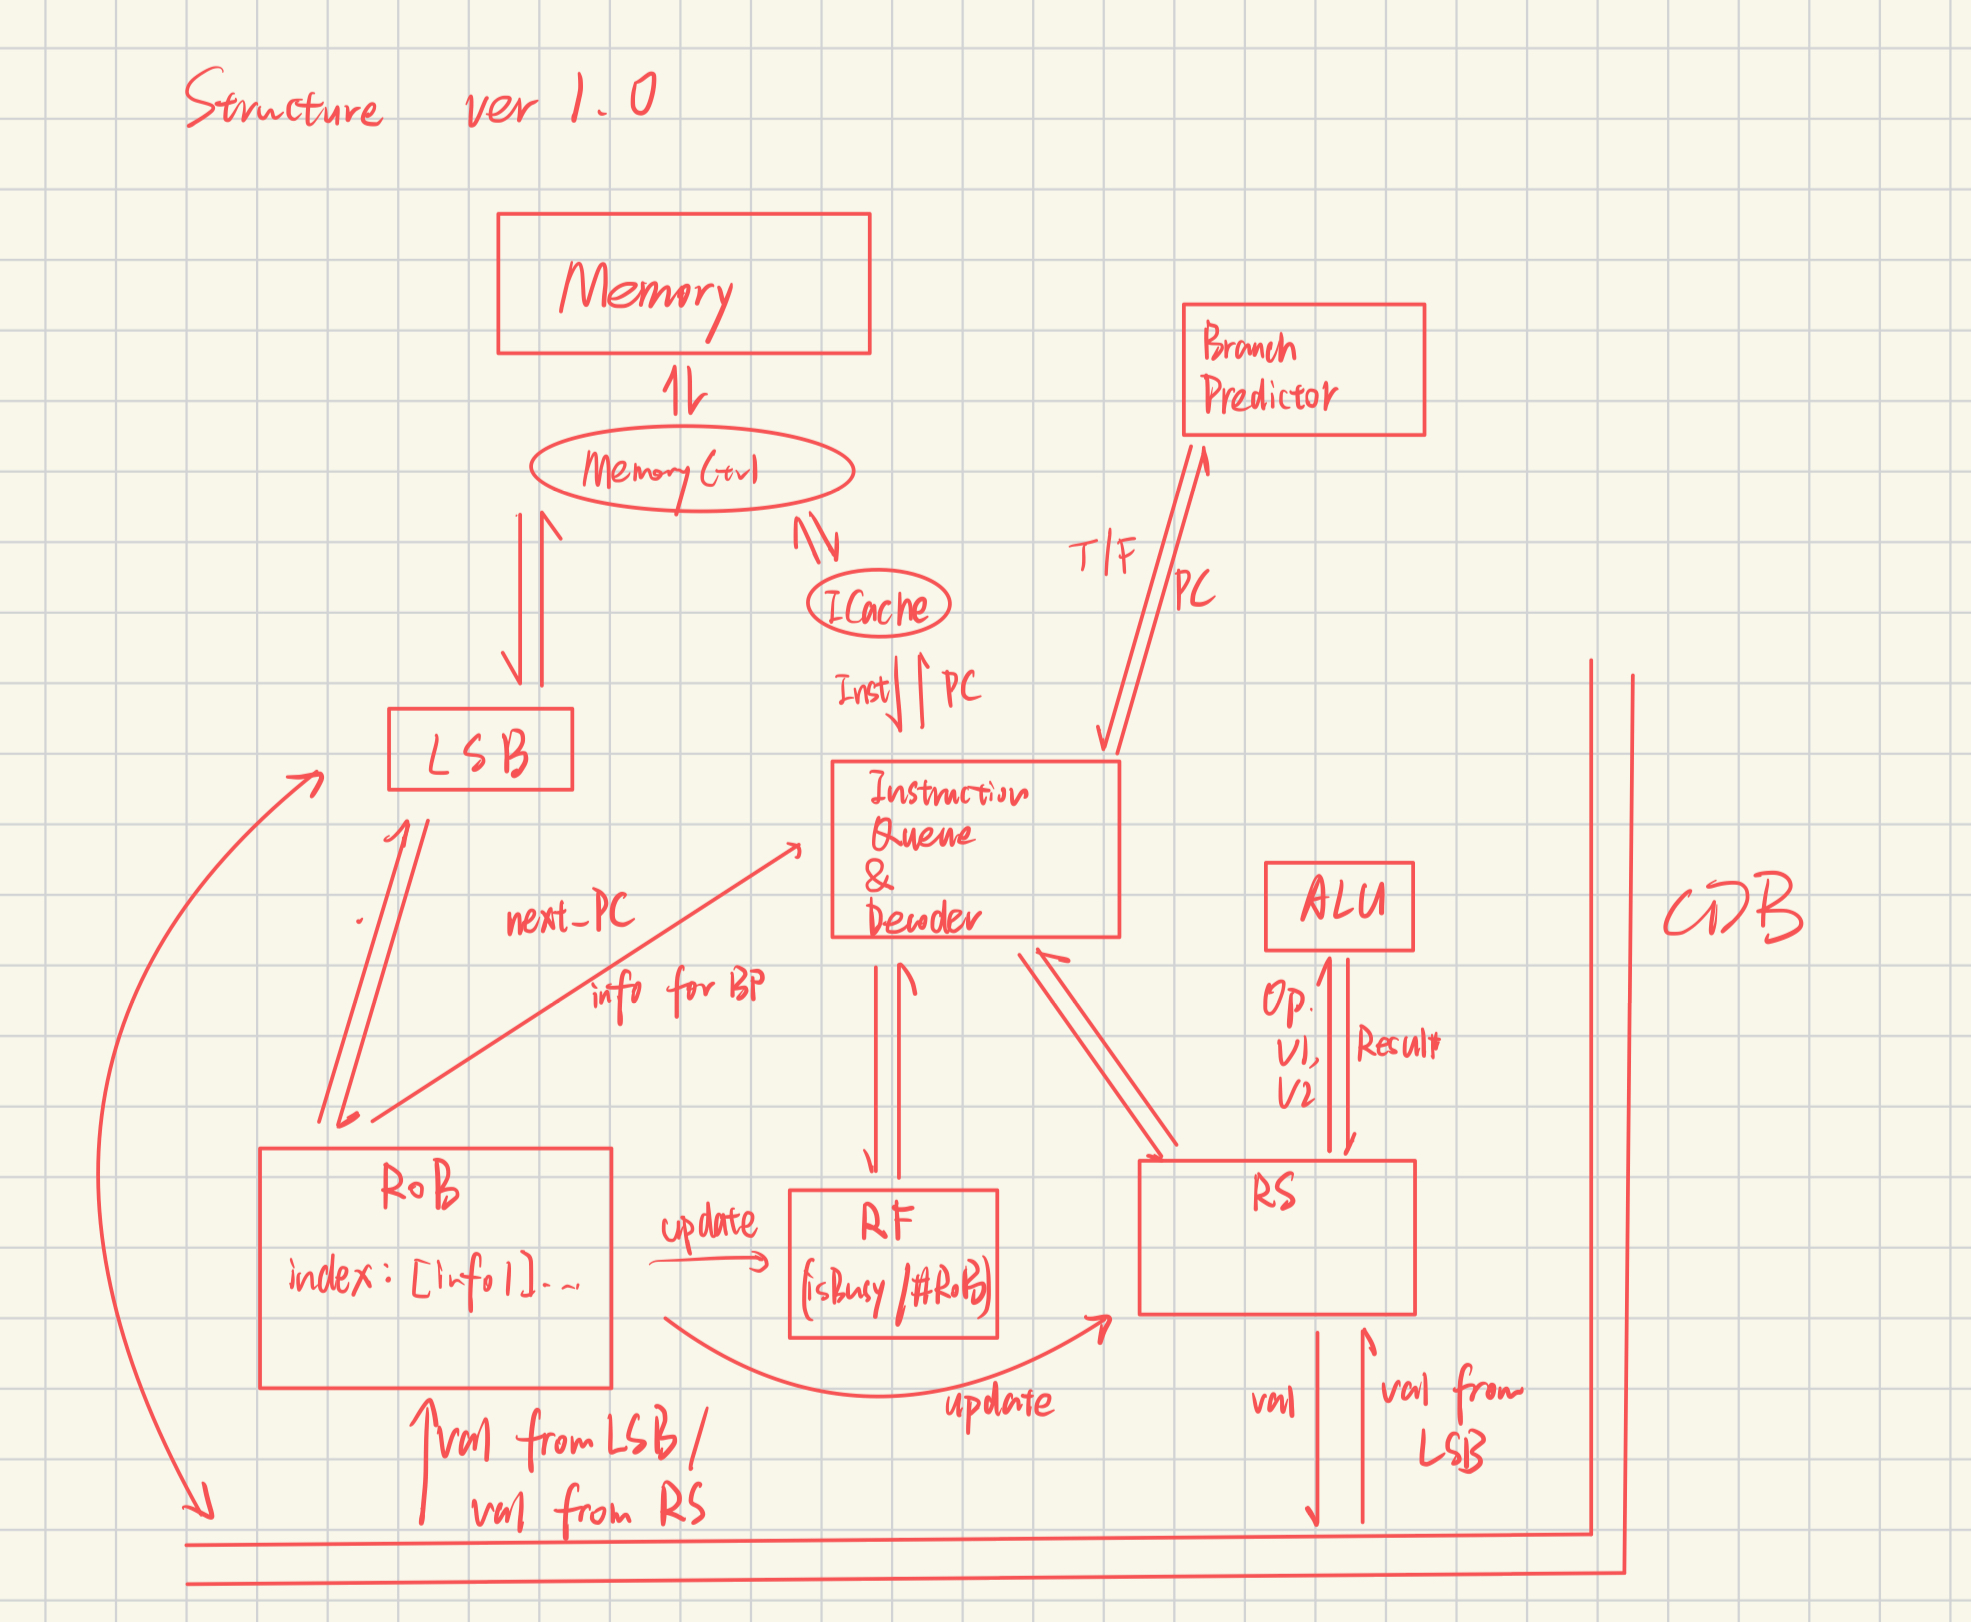 Structure ver 1.0
Memory
Branch
Predictor
Memory Ctrl
T/F
PC
ICache
Inst
PC
LSB
Instruction
Queue
&
Decoder
ALU
CDB
next_PC
info for BP
Op.
V1,
V2
Result
RoB
index: [info1]...
update
RF
(isBusy/#RoB)
RS
update
val
val from
LSB
val from LSB/
val from RS